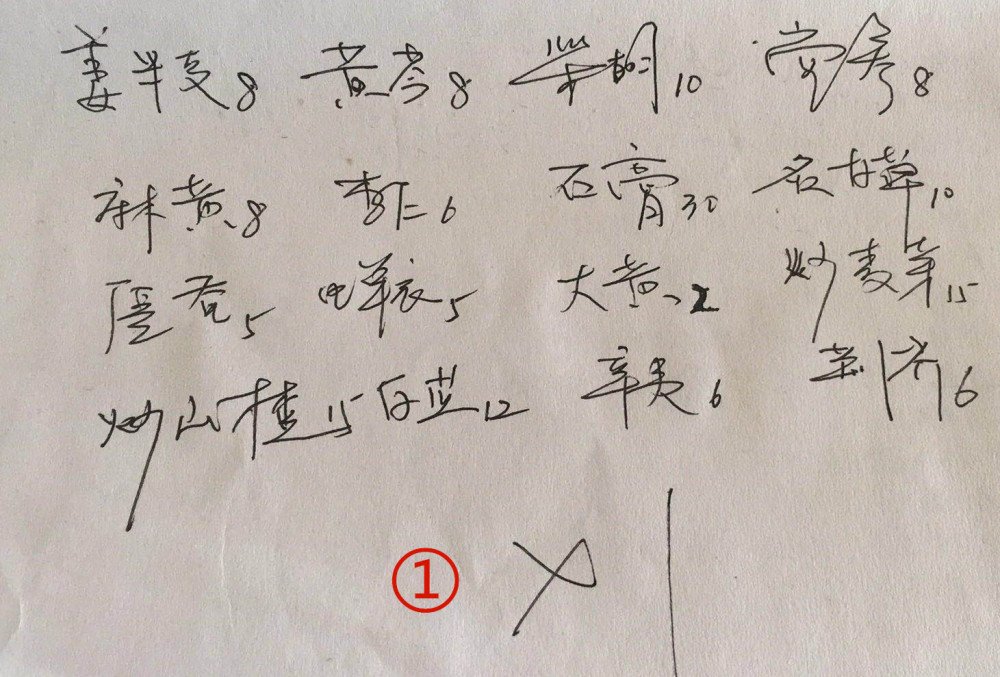 姜半夏8 黄芩8 柴胡10 党参8
麻黄8 杏仁6 石膏30 炙甘草10
藿香5 蝉衣5 大黄2 炒麦芽15
炒山楂15 辛夷6 荆芥6
①